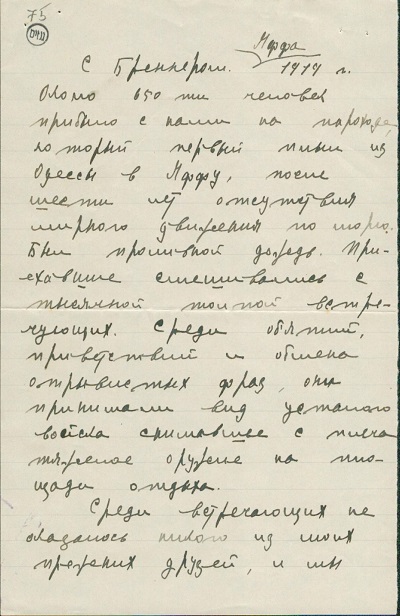 75
Яффа
С Бреннером. 1919 г.
Около 650 ти человек
прибыло с нами на пароходе,
который первый плыл из
Одессы в Яффу, после
шести лет отсутствия
мирного движения по морю.
Был проливной дождь. При-
ехавшие смешивались с
тысячной толпой встре-
чующих. Среди объятий,
приветствий и обмена
отрывистых фраз, они
принимали вид усталого
войска снимавшее с плеча
тяжелое оружие на пло-
щади отдыха.
Среди встречающих не
оказалось никого из моих
прежних друзей, и мы